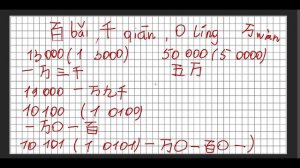 百 bǎi, 千 qiān, 0 líng 万 wàn
13000 (1 3000) 50 000 (5 0000)
一万三千 五万
19000 一万九千
10 100 (1 0100)
一万0一百
10 101 (1 0101) 一万0一百0一)